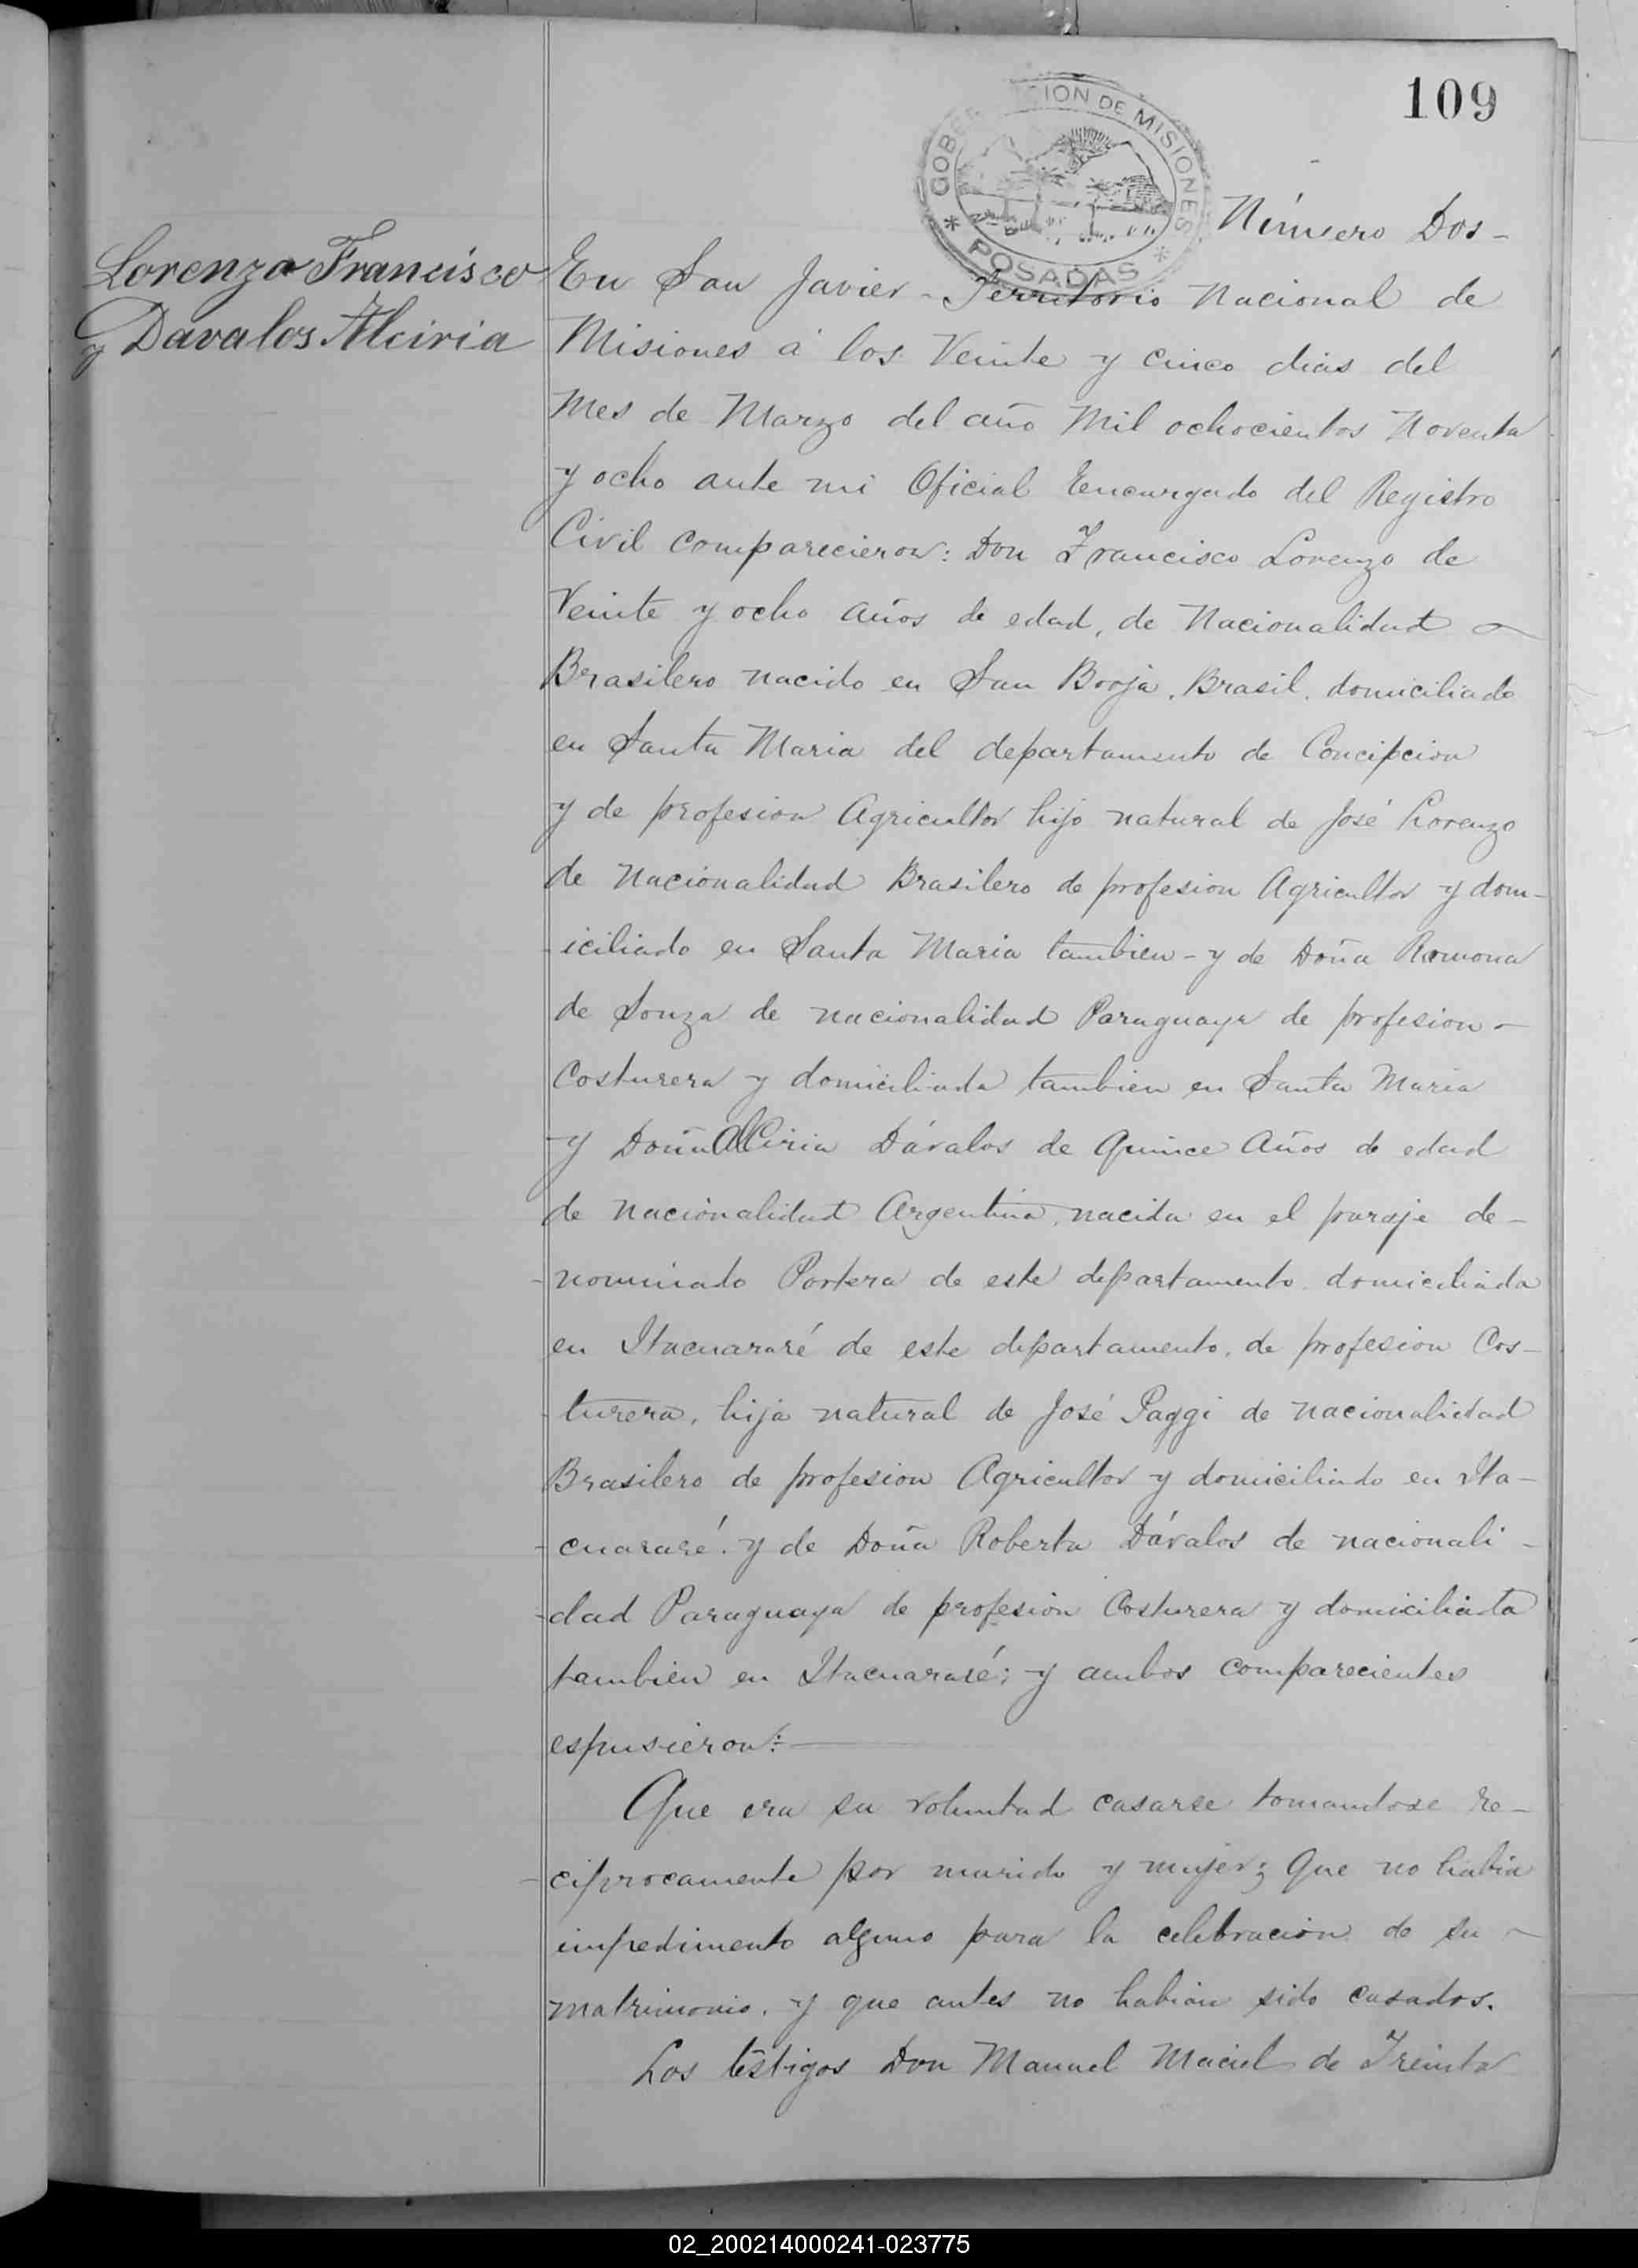 109
GOBER CION DE MISIONES
* POSADAS *
Número Dos -
Lorenzo Francisco
y Davalos Alciria
En San Javier - Territorio Nacional de
Misiones á los Veinte y cinco dias del
Mes de Marzo del año Mil ochocientos Noventa
y ocho ante mi Oficial Encargado del Registro
Civil comparecieron: Don Francisco Lorenzo de
Veinte y ocho años de edad, de Nacionalidad
Brasilero nacido en San Borja, Brasil, domiciliado
en Santa Maria del departamento de Concepcion
y de profesion Agricultor hijo natural de José Lorenzo
de Nacionalidad Brasilero de profesion Agricultor y dom-
iciliado en Santa Maria tambien - y de Doña Romona
de Souza de nacionalidad Paraguaya de profesion -
Costurera y domiciliada tambien en Santa Maria
- y Doña Alciria Dávalos de Quince Años de edad
de nacionalidad Argentina, nacida en el paraje de-
- nominado Portera de este departamento domiciliada
en Itacuararé de este departamento, de profesion Cos-
- turera, hija natural de José Paggi de nacionalidad
Brasilero de profesion Agricultor y domiciliado en Ita-
- cuararé. y de Doña Roberta Dávalos de nacionali -
- dad Paraguaya de profesion Costurera y domiciliada
tambien en Itacuararé; y ambos comparecientes
espusieron:
Que era su voluntad casarse tomandose re-
- ciprocamente por marido y mujer; Que no habia
impedimento alguno para la celebracion de su
matrimonio, y que antes no habian sido casados.
Los testigos Don Manuel Maciel de Treinta
02_200214000241-023775